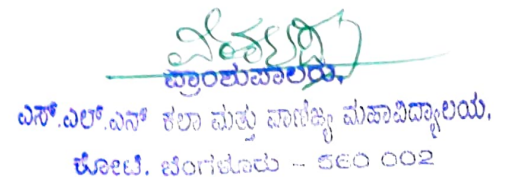 ಪ್ರಾಂಶುಪಾಲರು,
ಎಸ್.ಎಲ್.ಎನ್ ಕಲಾ ಮತ್ತು ವಾಣಿಜ್ಯ ಮಹಾವಿದ್ಯಾಲಯ,
ಕೋಟೆ, ಬೆಂಗಳೂರು - 560 002